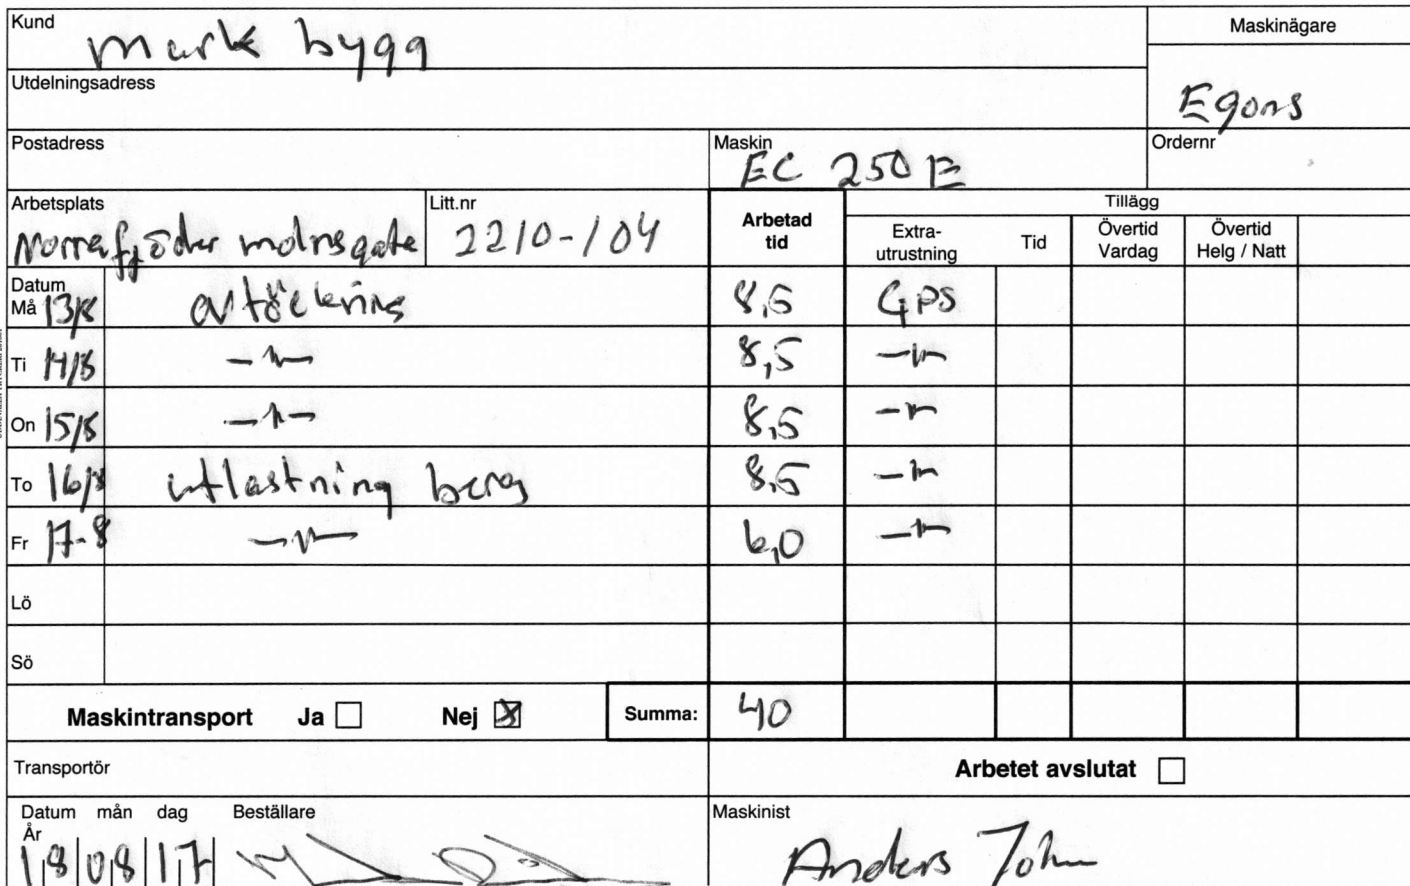 Kund mark bygg Maskinägare
Utdelningsadress Egons
Postadress Maskin EC 250 E Ordernr
Arbetsplats Litt.nr 2210-104 Arbetad tid Tillägg
Extra-utrustning Tid Övertid Vardag Övertid Helg / Natt
Datum
Må 13/8 avtäckning 8,5 GPS
Ti 14/8 -"- 8,5 -"-
On 15/8 -"- 8,5 -"-
To 16/8 utlastning berg 8,5 -"-
Fr 17-8 -"- 6,0 -"-
Lö
Sö
Maskintransport Ja Nej Summa: 40
Transportör Arbetet avslutat
Datum mån dag Beställare Maskinist
År
18 08 17 Anders John